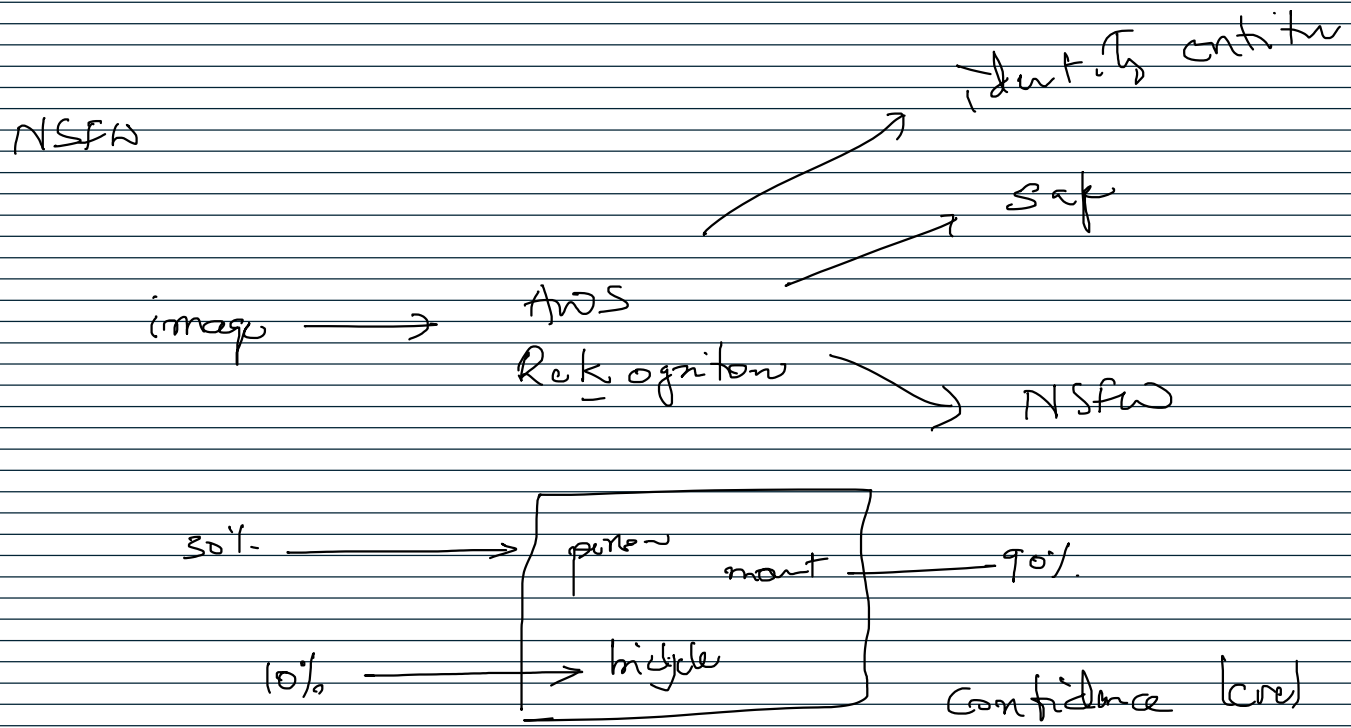 identify entity
NSFW
safe
image
AWS
Rekognition
NSFW
30%
person
mount
90%
10%
bicycle
Confidence level